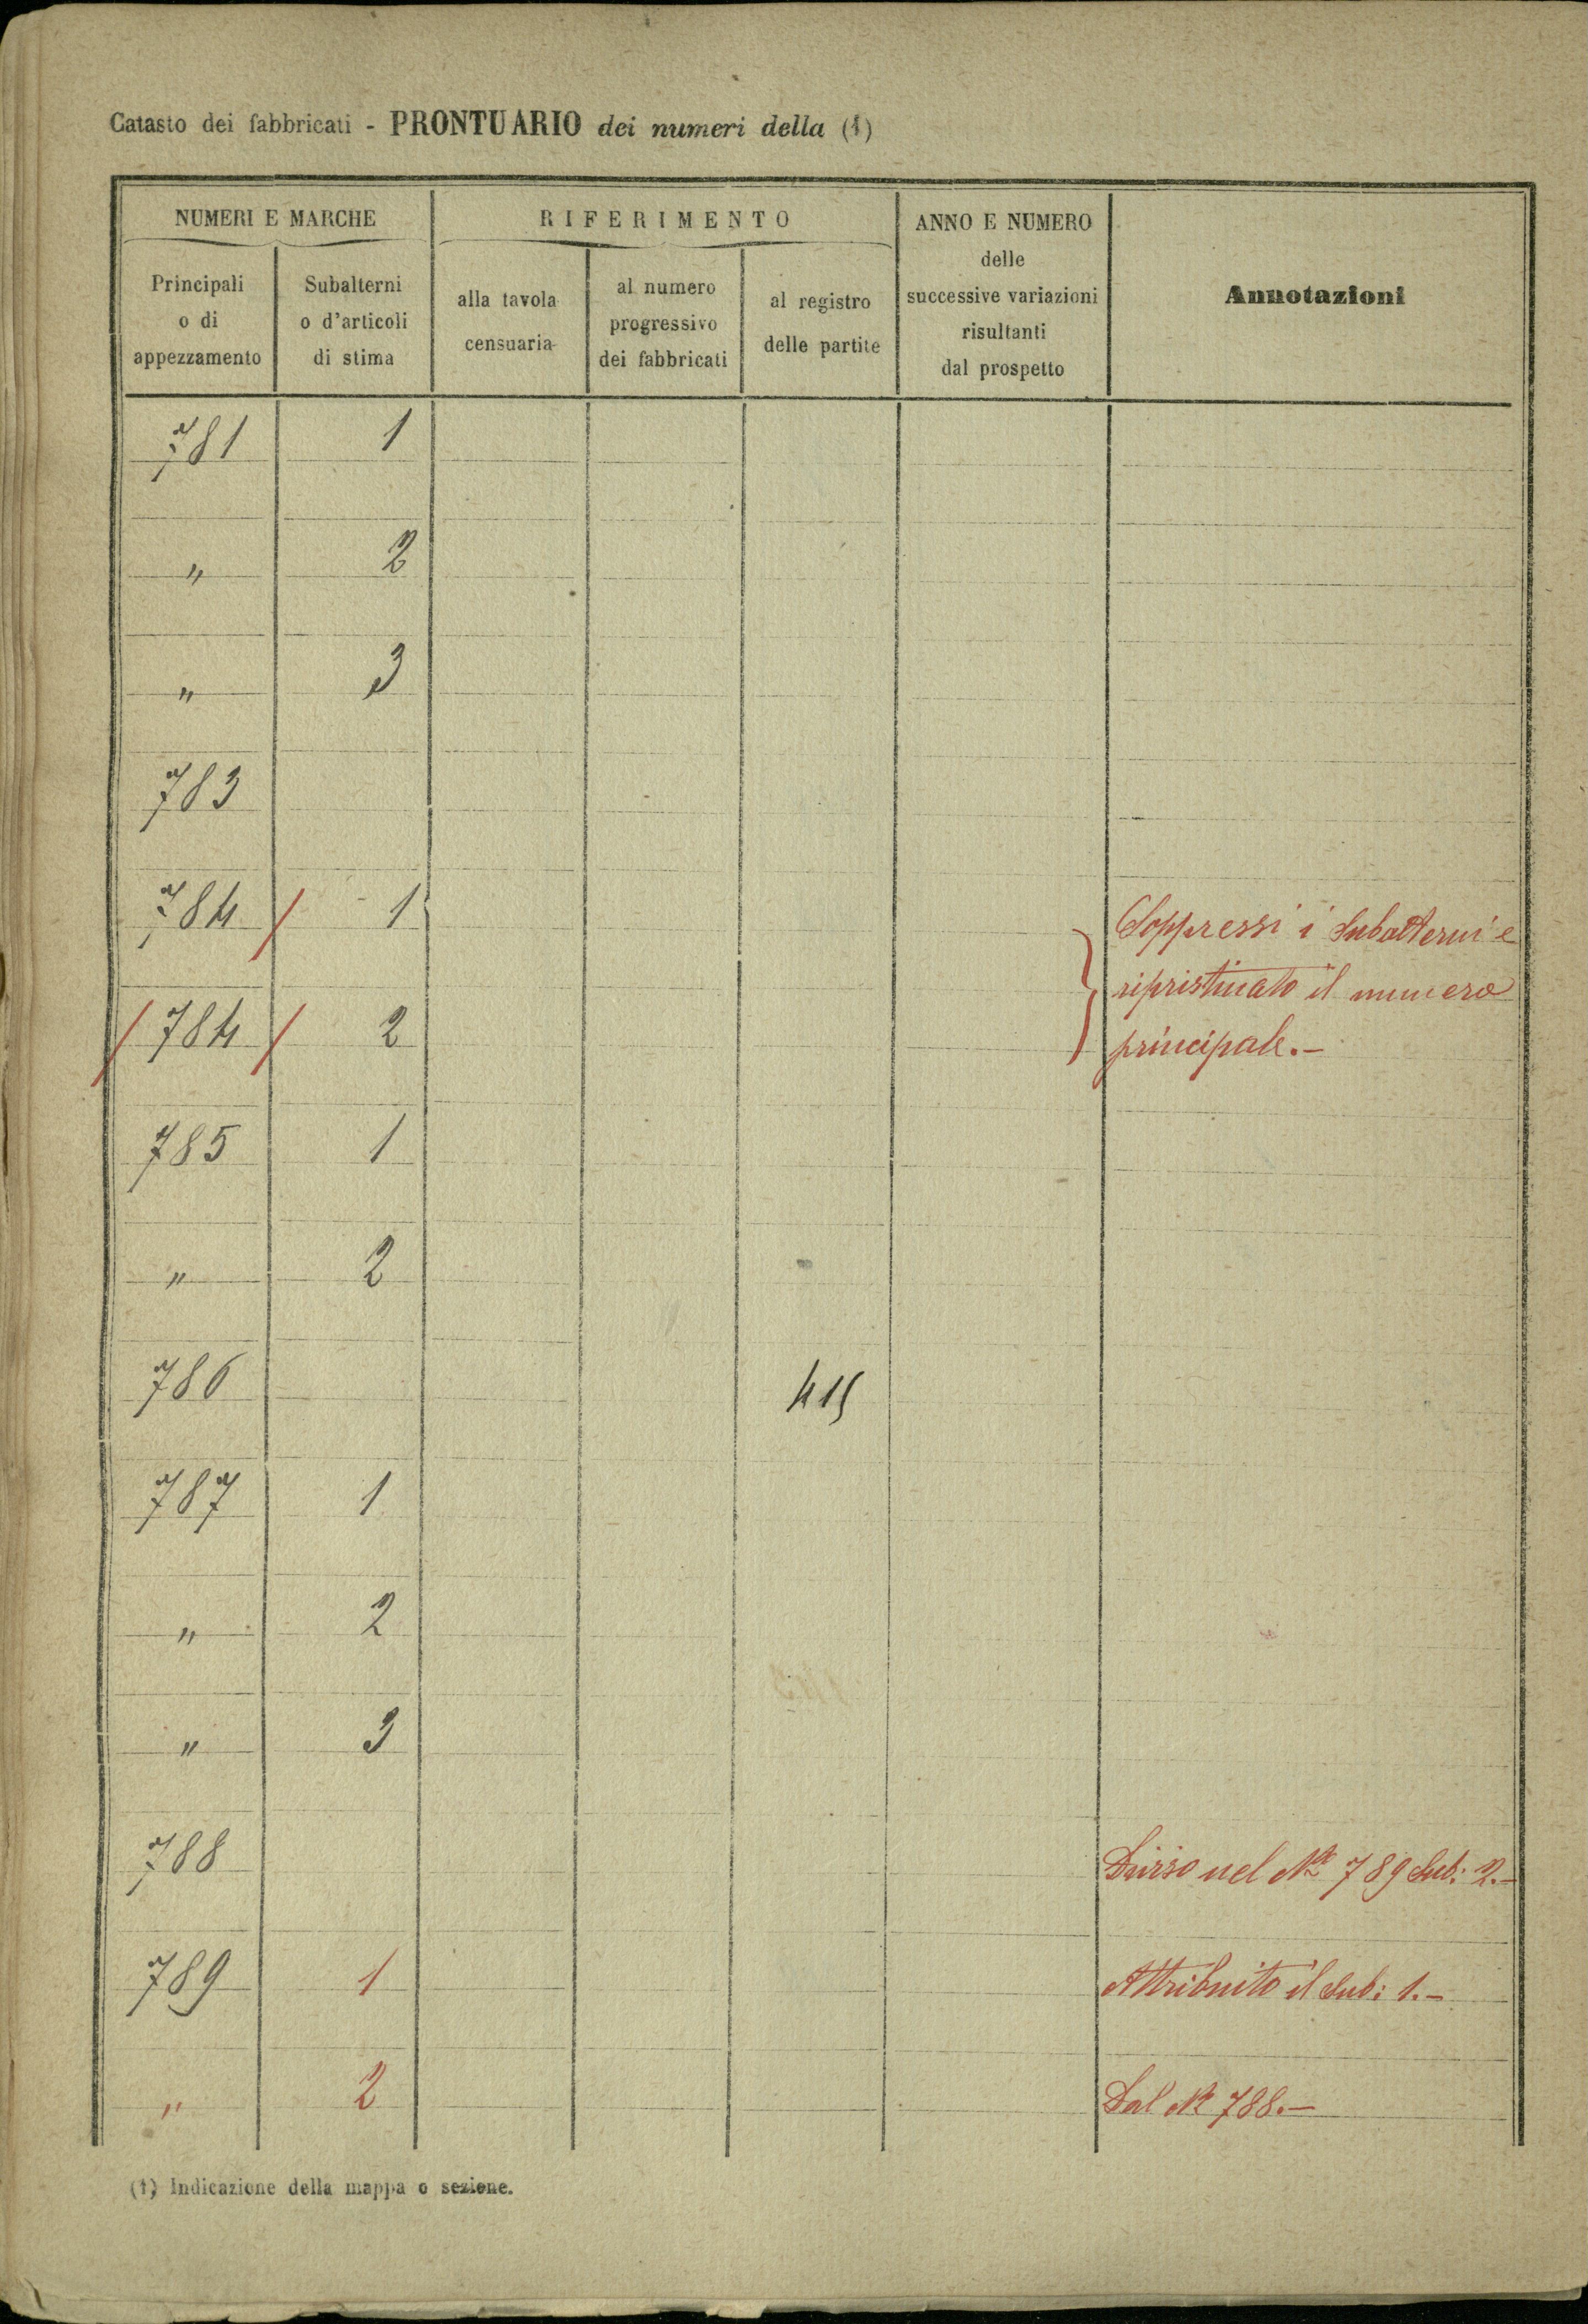 Catasto dei fabbricati - PRONTUARIO dei numeri della (1)
NUMERI E MARCHE
RIFERIMENTO
ANNO E NUMERO
delle
successive variazioni
risultanti
dal prospetto
Annotazioni
Principali
o di
appezzamento
Subalterni
o d'articoli
di stima
alla tavola
censuaria
al numero
progressivo
dei fabbricati
al registro
delle partite
781 1
" 2
" 3
783
784 / 1 Soppressi i Subalterni e
ripristinato il numero
/ 784 / 2 principale.-
785 1
" 2
786 415
787 1
" 2
" 3
788 nel Nº 789 Sub: 2.-
789 1 Attribuito il Sub: 1.-
" 2 Dal Nº 788.-
(1) Indicazione della mappa o sezione.